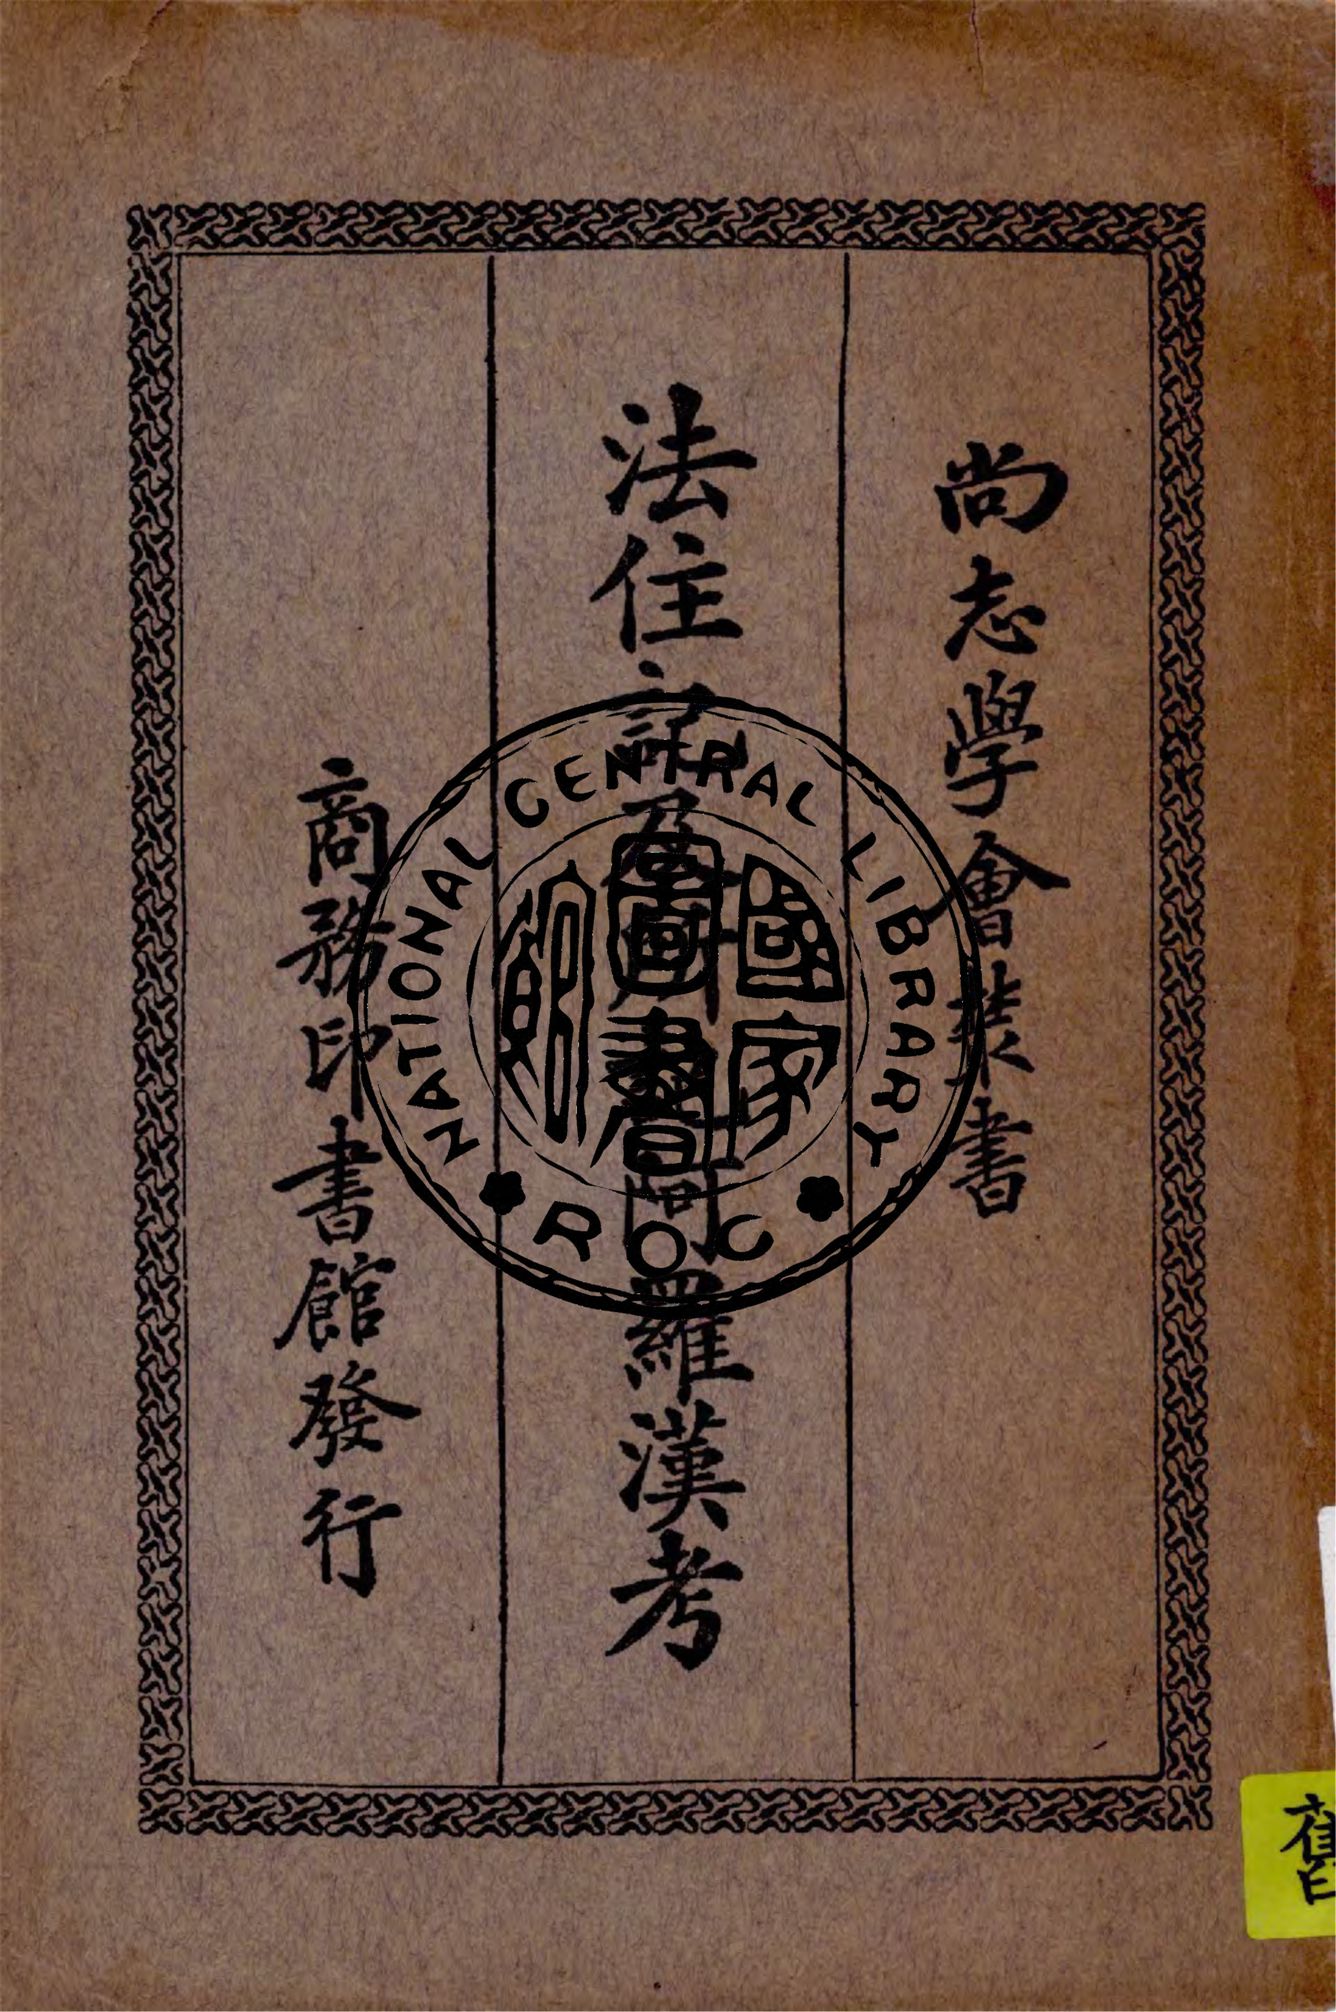 尚志學會叢書
法住記及所記阿羅漢考
商務印書館發行
NATIONAL CENTRAL LIBRARY
國家圖書館
ROC